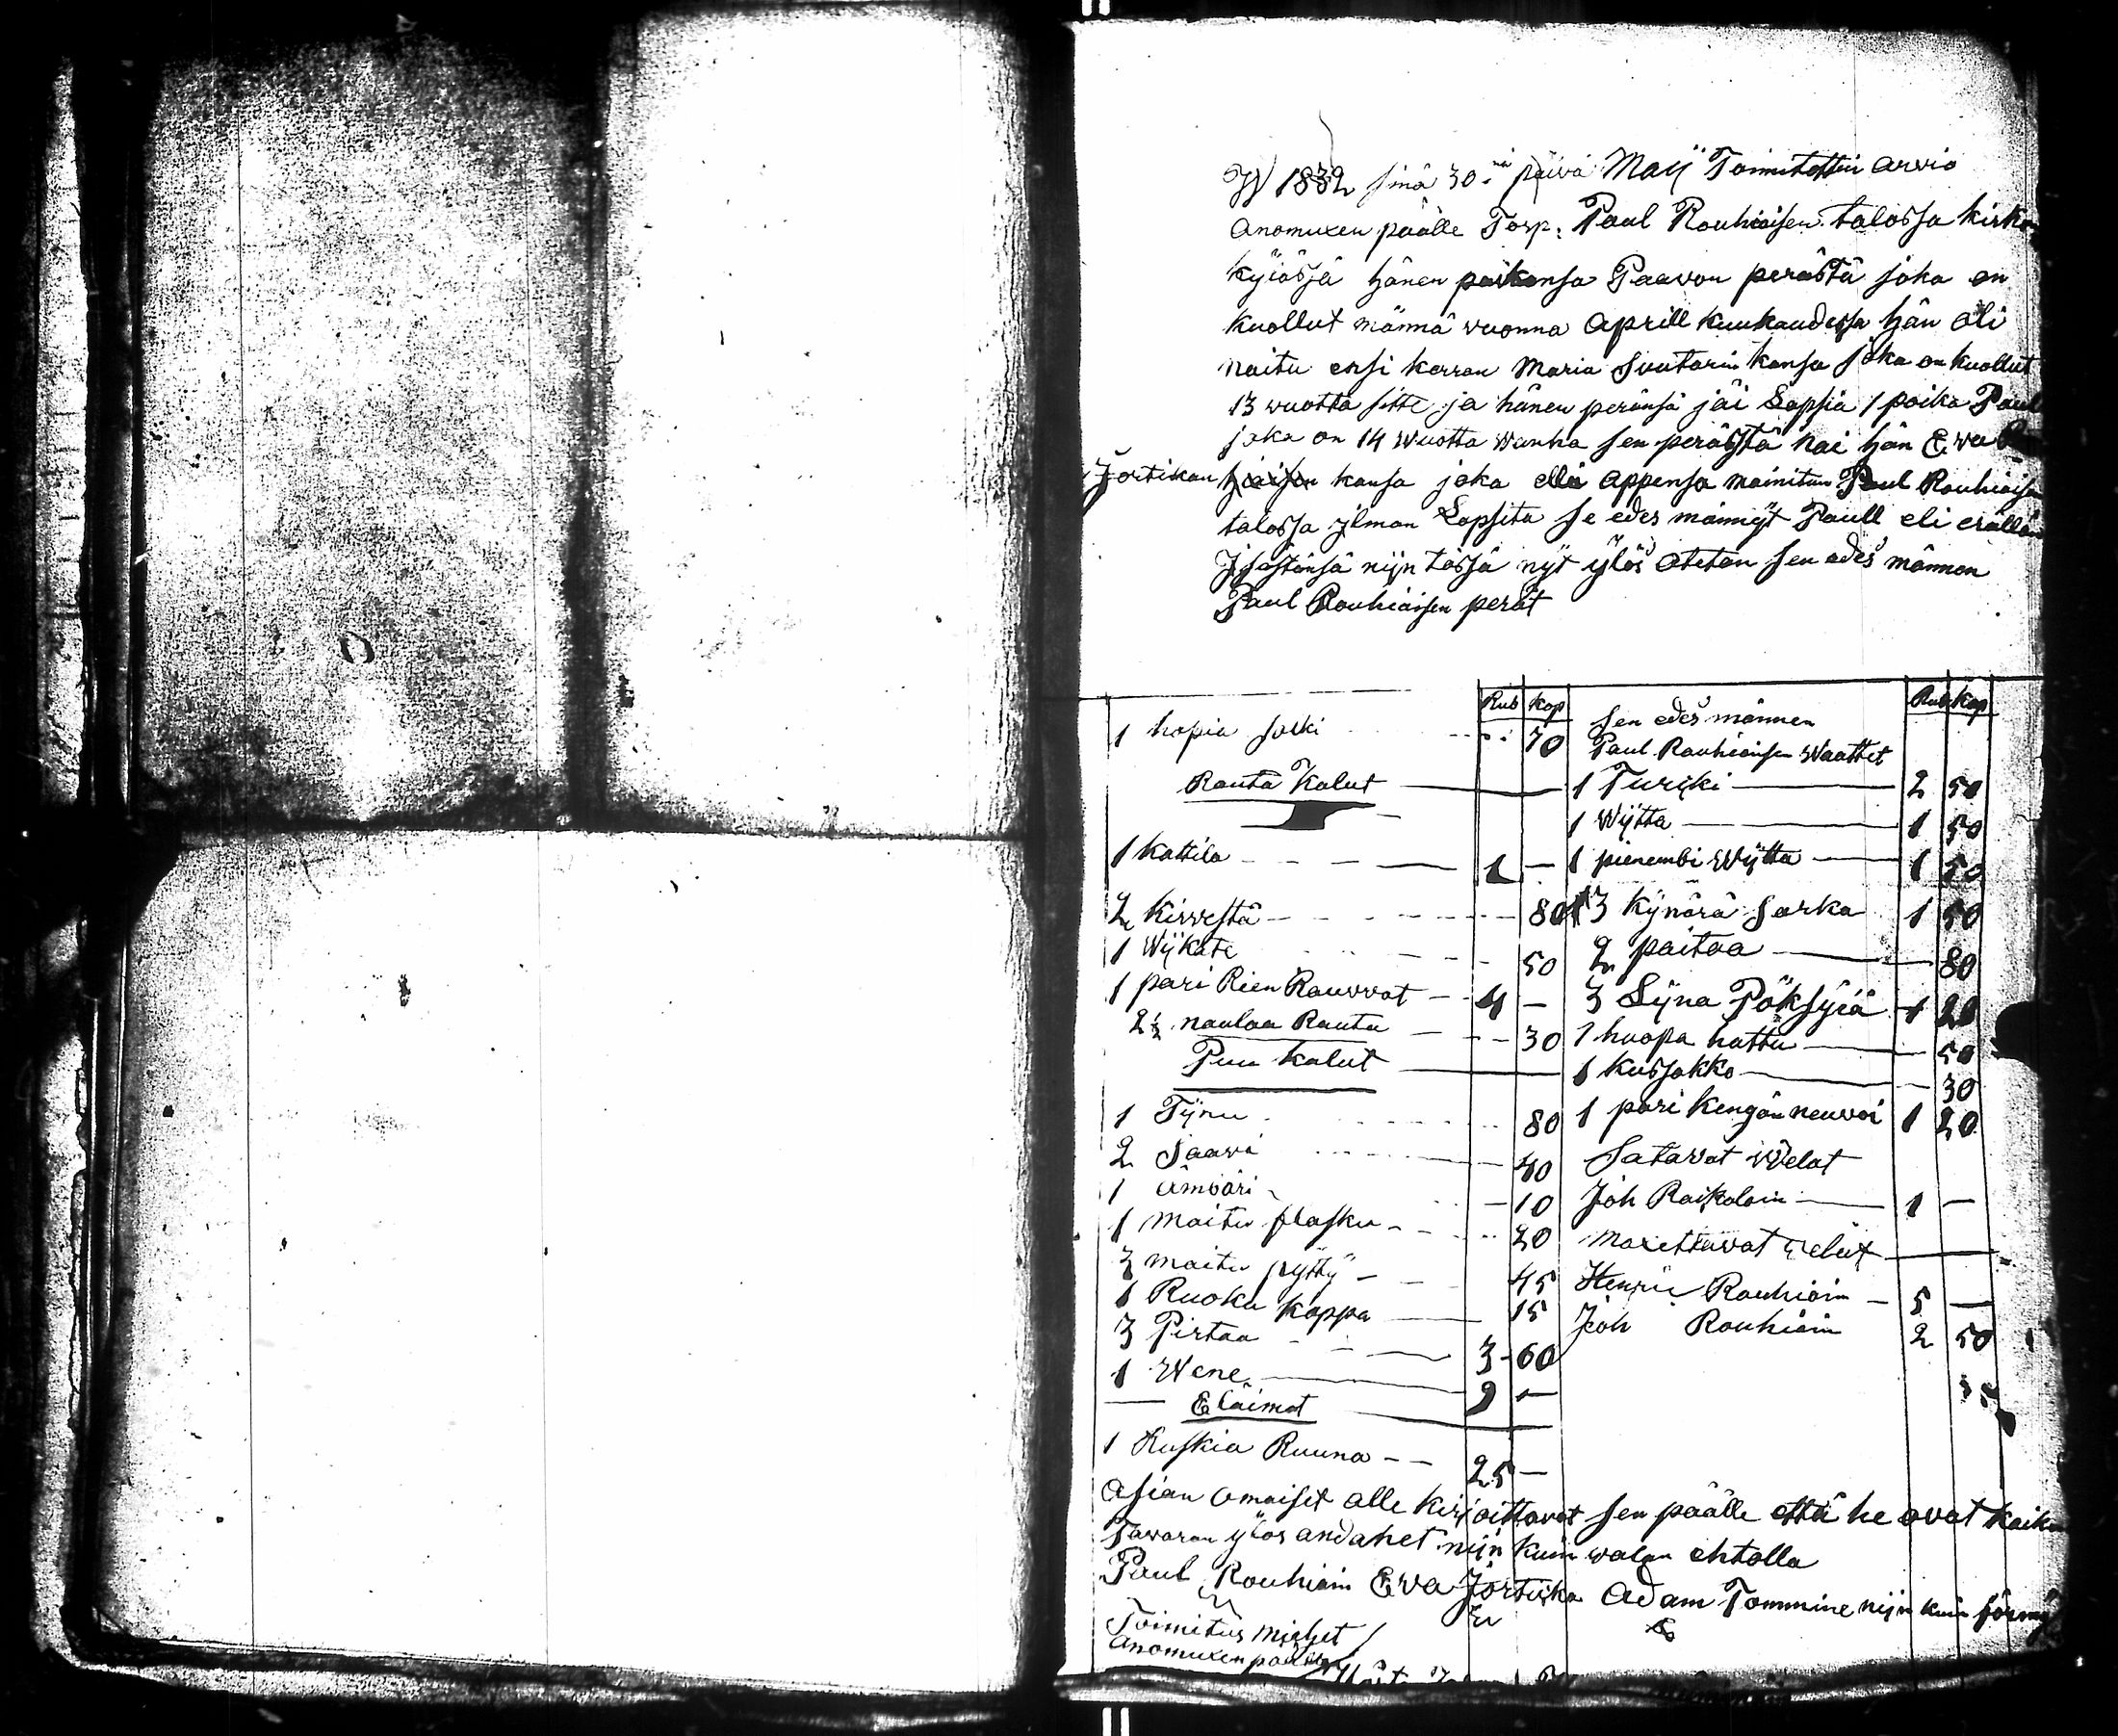 W 1832 sinä 30:nä päivä Maij Toimitettin arvio
Anomuxen päälle Torp: Paul Rouhiaisen talossa kirko
kyläsjä hänen poikansa Paavon perästä joka on
kuollut männä vuonna Aprill kuukaudessa hän oli
naitu ensi kerran Maria Suutarin kansa joka on kuollut
13 vuotta sitte ja hänen peränsä jäi Lapsia 1 poika Paul
joka on 14 Wuotta wanha sen perästä nai hän Eva
Jortikan kansa joka elää appensa mainitun Paul Rouhiaisen
talossa ylman Lapsita se edes männyt Paull eli erällän
Isästänsä nijn tässä nyt ylös otetan sen edes männen
Paul Rouhiaisen perät
Rub kop
1 hopia solki 70
Rauta Kalut
1 Kattila 1 —
2 Kirvestä 80
1 Wijkate 50
1 pari Rien Rauvvat 4 —
2½ naulaa Rauta 30
Puu kalut
1 Tijnu 80
2 Saavi 40
1 ämbäri 10
1 Maitu flasku 20
3 maitu pyttÿ 45
1 Ruoku koppa 15
3 Pirtaa 3 60
1 Wene 9 —
Eläimet
1 Ruskia Ruuna 25 —
Rub kop
sen edes männen
Paul Rauhiaisen Waattet
1 Turcki 2 50
1 Wijtta 1 50
1 pienembi Wijtta 1 50
13 kynärä sarka 1 50
2 paitaa 80
3 Lijna Pöksyiä 1 20
1 huopa hattu 50
1 kussakko 30
1 pari Kengän neuvoi 1 20
Satavat Welat
Joh Raikolain 1 —
Maxettavat Velat
Henric Rouhiain 5 —
Joh Rouhiain 2 50
Asian omaiset alle kirjoittavat sen päälle että he ovat kaiken
Tavaran ylös andanet nijn kuin walan ehtolla
Paul Rouhiain Eva Jortikka Adam Tommine nijn kuin
Toimitus miehet
Anomuxen päälle